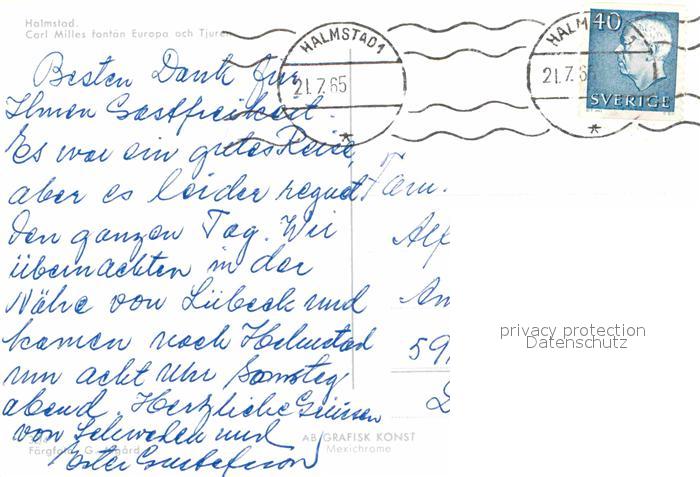 Halmstad.
Carl Milles fontän Europa och Tjuren
HALMSTAD 1
21.7.65
HALM
21.7.6
40
SVERIGE
Besten Dank für
Ihnen Gastfreiheit.
Es war ein gutes Reise,
aber es leider regnet
den ganzen Tag. Wir
übernachten in der
Nähe von Lübeck und
kamen nach Halmstad
um acht Uhr Samstag
abend. Herzliche Grüssen
von Schweden und
Ester Gustafsson
Fam.
Alf
An
59
L
privacy protection
Datenschutz
Färgfoto: G.
AB GRAFISK KONST
Mexichrome